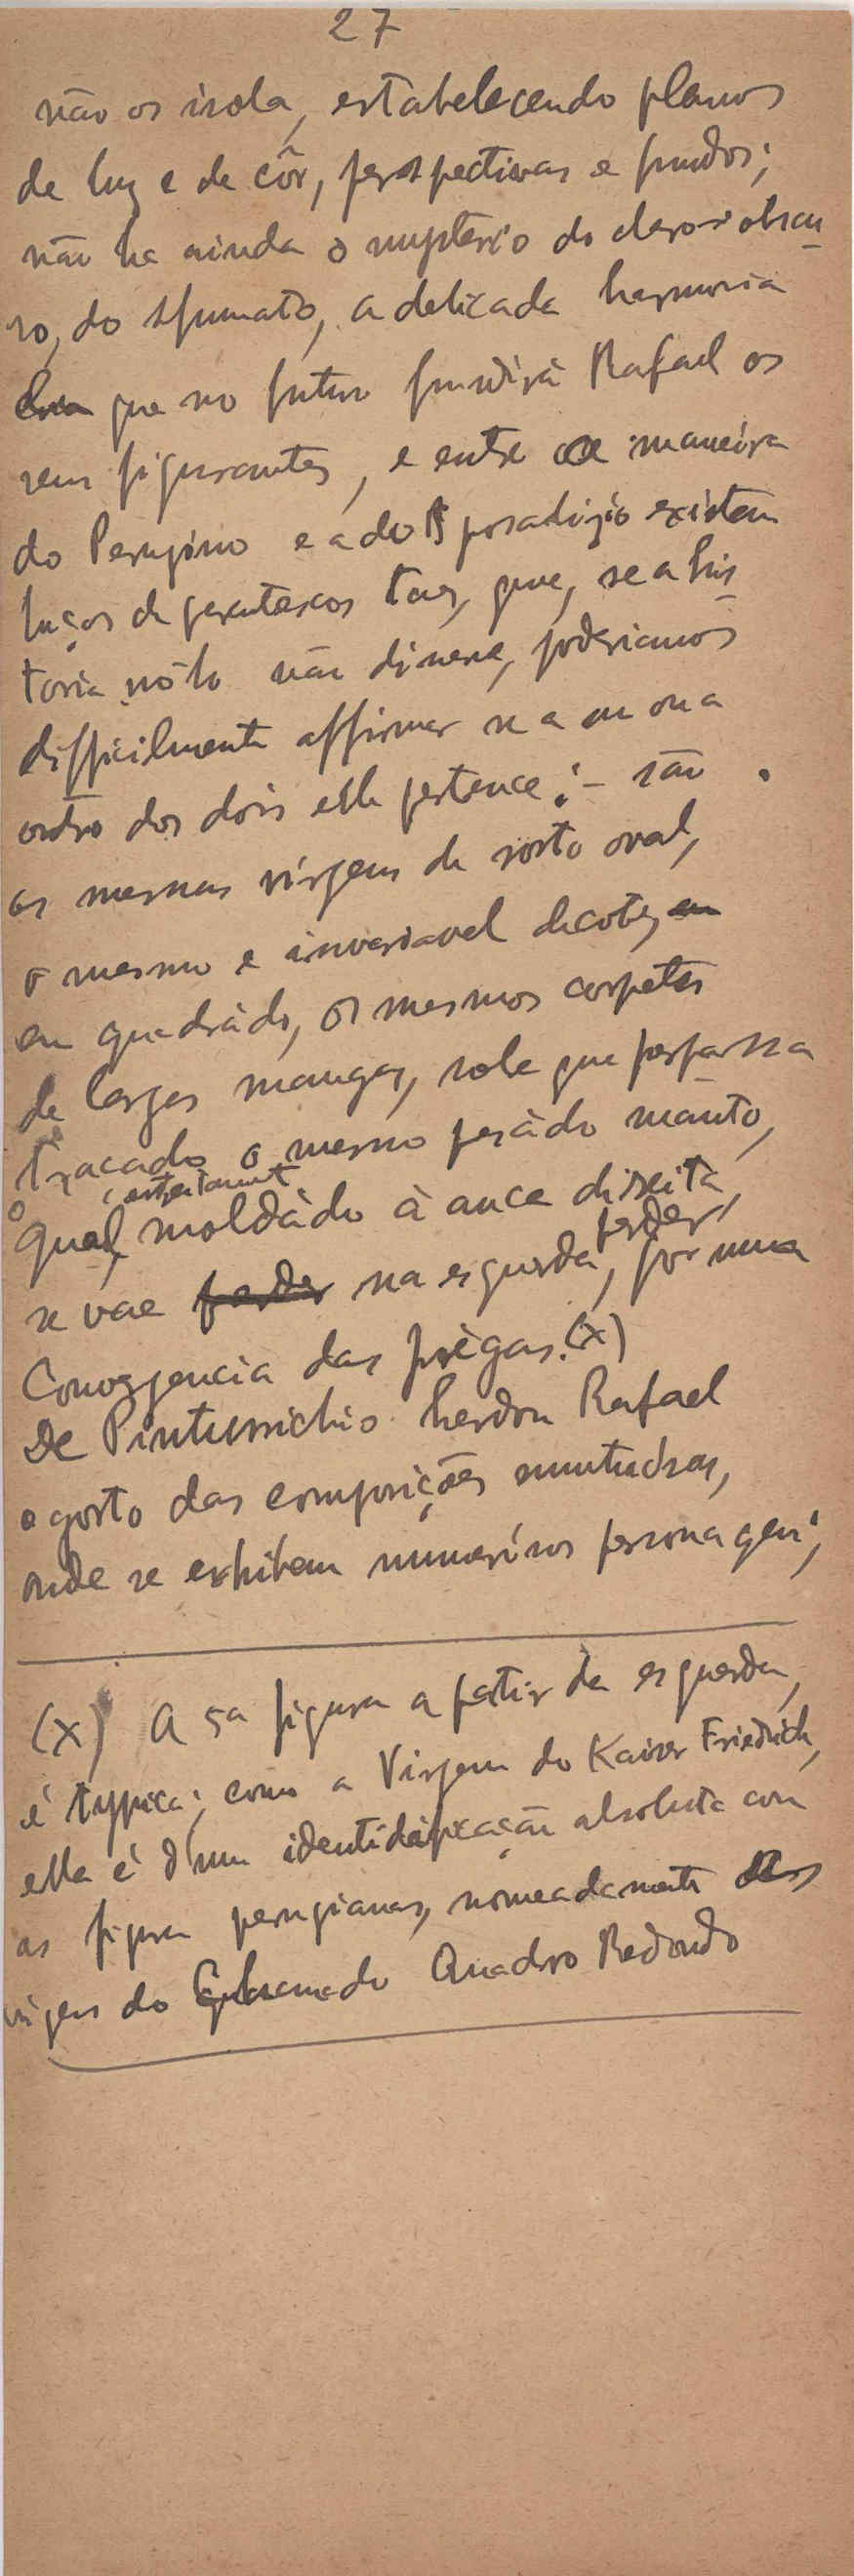 27
não os isola, estabelecendo planos
de luz e de côr, perspectivas e fundos;
não ha ainda o mysterio do claro-obscu
ro, do sfumato, a delicada harmonia
que no futuro fundirá Rafael os
seus figurantes, e entre a maneira
do Perugino e a do Sposalizio existem
laços de parentescos taes, que, se a his
toria nól-o não dissera, poderiamos
difficilmente affirmar se a um ou a
outro dos dois elle pertence: – são
as mesmas virgens de rosto oval,
o mesmo e invariavel decote,
em quadrádo, os mesmos corpetes
de largas mangas, sobe que perpassa
traçado o mesmo pesádo manto,
o qual, moldádo estreitamente á anca direita,
se vae perder na esquerda, por uma
convergencia das prégas. (x)
De Pinturrichio herdou Rafael
o gosto das composições
onde se exhibem numerósos personagens;
(x) A 5a figura a patir da esquerda,
é typica; como a Virgem do Kaiser Friedrich,
ella é d'uma absoluta com
as figuras peruginas, nomeadamente
virgens do Quadro Redondo